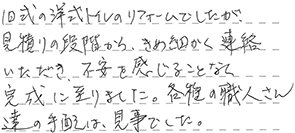 旧式の洋式トイレのリフォームでしたが、
見積りの段階から、きめ細かく連絡
いただき、不安を感じることなく
完成に至りました。各種の職人さん
達の手配は、見事でした。